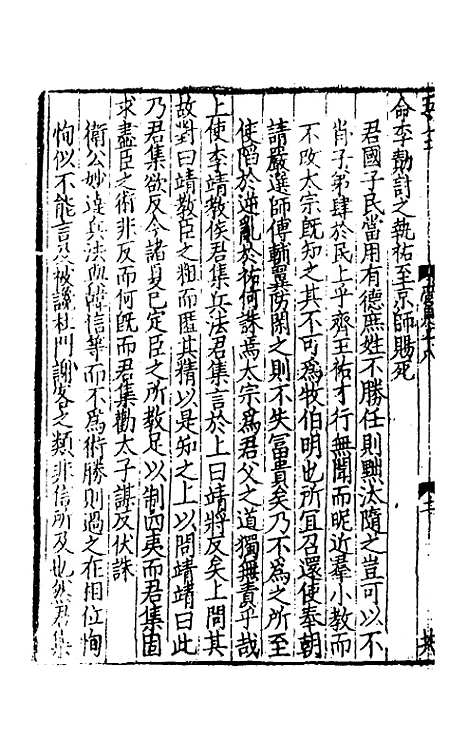 命李勣討之執祐至京師賜死
君國子民當用有德庶姓不勝任則黜汰隨之豈可以不
肖子弟肆於民上乎齊王祐才行無聞而昵近羣小教而
不改太宗旣知之其不可爲牧伯明也所宜召還使奉朝
請嚴選師傅輔翼防閑之則不失冨貴矣乃不爲之所至
使陷於逆亂於祐何誅焉太宗爲君父之道獨無責乎哉
上使李靖教侯君集兵法君集言於上曰靖將反矣上問其
故對曰靖教臣之粗而匿其精以是知之上以問靖靖曰此
乃君集欲反今諸夏已定臣之所教足以制四夷而君集固
求盡臣之術非反而何旣而君集勸太子謀反伏誅
衛公妙達兵法與韓信等而不爲術勝則過之在相位恂
恂似不能言及被讒杜門謝客之類非信所及也然君集